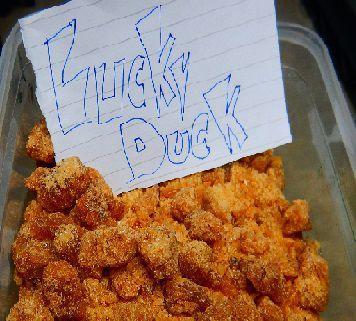 Lucky
Duck